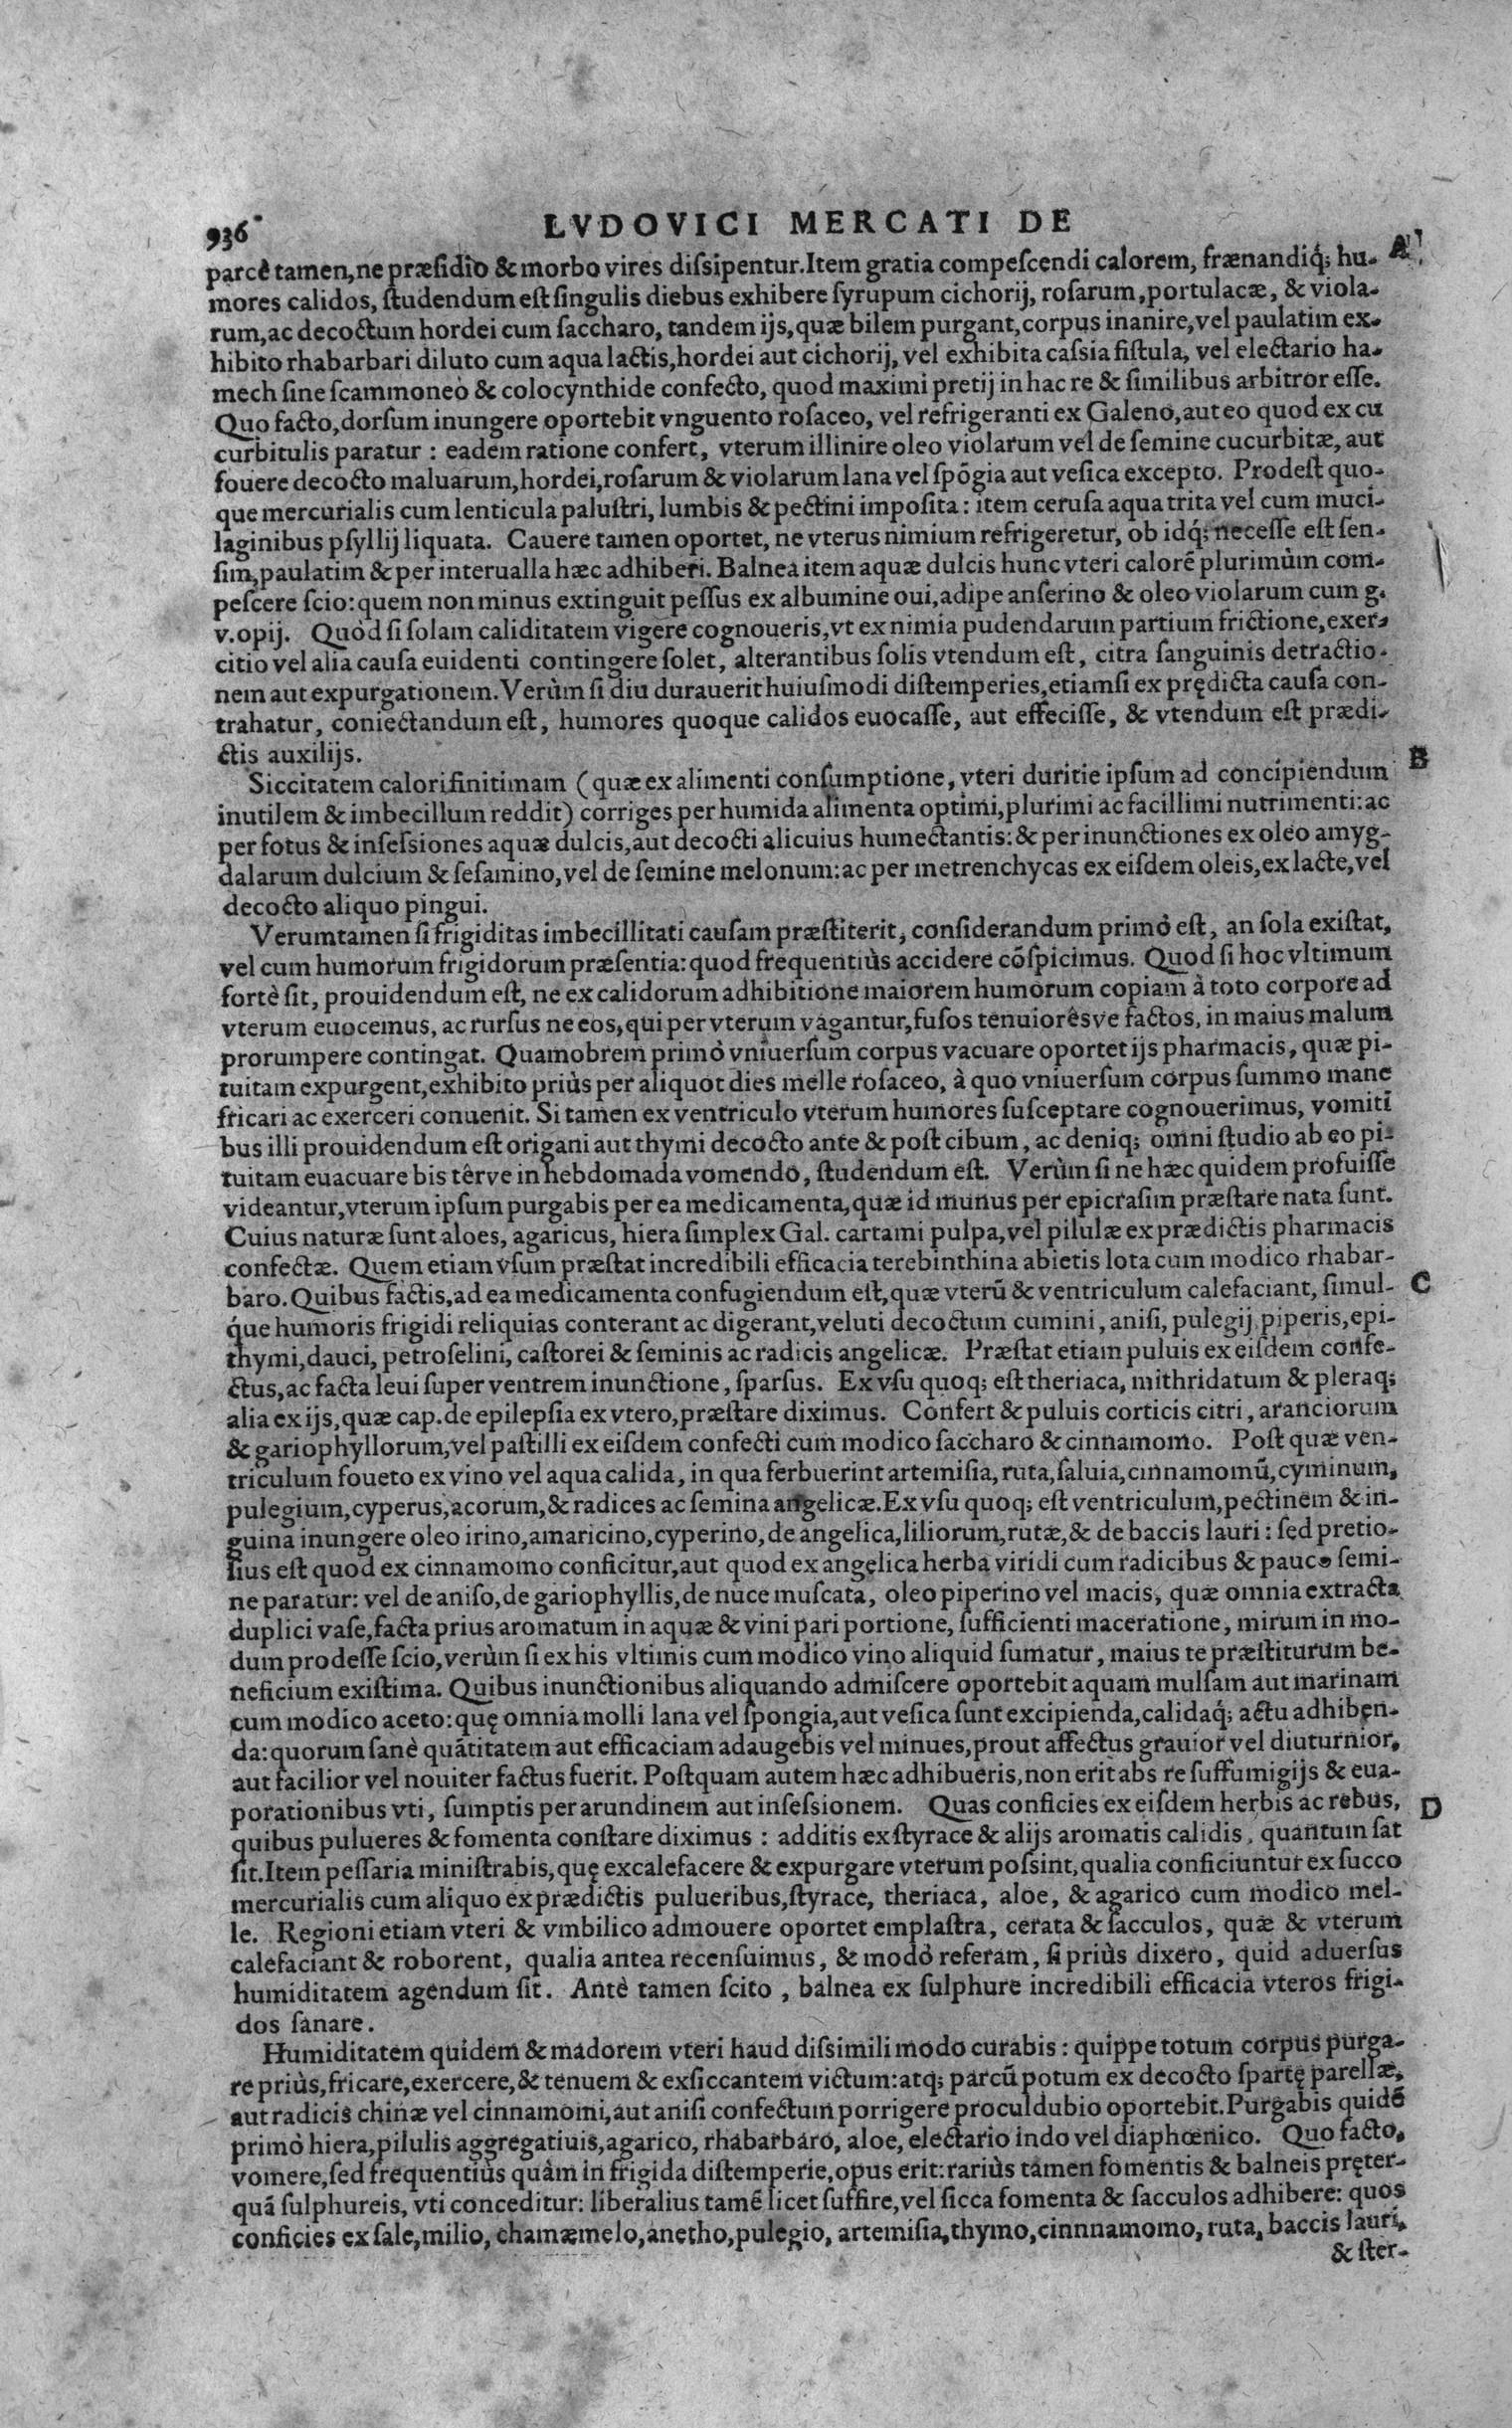 936 LVDOVICI MERCATI DE
parcè tamen, ne præsidio & morbo vires dissipentur. Item gratia compescendi calorem, frænandiq́; hu- A
mores calidos, studendum est singulis diebus exhibere syrupum cichorij, rosarum, portulacæ, & viola-
rum, ac decoctum hordei cum saccharo, tandem ijs, quæ bilem purgant, corpus inanire, vel paulatim ex-
hibito rhabarbari diluto cum aqua lactis, hordei aut cichorij, vel exhibita cassia fistula, vel electario ha-
mech sine scammoneo & colocynthide confecto, quod maximi pretij in hac re & similibus arbitror esse.
Quo facto, dorsum inungere oportebit vnguento rosaceo, vel refrigeranti ex Galeno, aut eo quod ex cu
curbitulis paratur : eadem ratione confert, vterum illinire oleo violarum vel de semine cucurbitæ, aut
fouere decocto maluarum, hordei, rosarum & violarum lana vel spõgia aut vesica excepto. Prodest quo-
que mercurialis cum lenticula palustri, lumbis & pectini imposita: item cerusa aqua trita vel cum muci-
laginibus psyllij liquata. Cauere tamen oportet, ne vterus nimium refrigeretur, ob idq́; necesse est sen-
sim, paulatim & per interualla hæc adhiberi. Balnea item aquæ dulcis hunc vteri calorẽ plurimùm com-
pescere scio: quem non minus extinguit pessus ex albumine oui, adipe anserino & oleo violarum cum g.
v. opij. Quòd si solam caliditatem vigere cognoueris, vt ex nimia pudendarum partium frictione, exer-
citio vel alia causa euidenti contingere solet, alterantibus solis vtendum est, citra sanguinis detractio-
nem aut expurgationem. Verùm si diu durauerit huiusmodi distemperies, etiamsi ex prędicta causa con-
trahatur, coniectandum est, humores quoque calidos euocasse, aut effecisse, & vtendum est prædi-
ctis auxilijs.
Siccitatem calori finitimam (quæ ex alimenti consumptione, vteri duritie ipsum ad concipiendum B
inutilem & imbecillum reddit) corriges per humida alimenta optimi, plurimi ac facillimi nutrimenti: ac
per fotus & insessiones aquæ dulcis, aut decocti alicuius humectantis: & per inunctiones ex oleo amyg-
dalarum dulcium & sesamino, vel de semine melonum: ac per metrenchycas ex eisdem oleis, ex lacte, vel
decocto aliquo pingui.
Verumtamen si frigiditas imbecillitati causam præstiterit, considerandum primò est, an sola existat,
vel cum humorum frigidorum præsentia: quod frequentiùs accidere cõspicimus. Quod si hoc vltimum
fortè sit, prouidendum est, ne ex calidorum adhibitione maiorem humorum copiam à toto corpore ad
vterum euocemus, ac rursus ne eos, qui per vterum vagantur, fusos tenuiorêsve factos, in maius malum
prorumpere contingat. Quamobrem primò vniuersum corpus vacuare oportet ijs pharmacis, quæ pi-
tuitam expurgent, exhibito priùs per aliquot dies melle rosaceo, à quo vniuersum corpus summo mane
fricari ac exerceri conuenit. Si tamen ex ventriculo vterum humores susceptare cognouerimus, vomiti
bus illi prouidendum est origani aut thymi decocto ante & post cibum, ac deniq; omni studio ab eo pi-
tuitam euacuare bis têrve in hebdomada vomendo, studendum est. Verùm si ne hæc quidem profuisse
videantur, vterum ipsum purgabis per ea medicamenta, quæ id munus per epicrasim præstare nata sunt.
Cuius naturæ sunt aloes, agaricus, hiera simplex Gal. cartami pulpa, vel pilulæ ex prædictis pharmacis
confectæ. Quem etiam vsum præstat incredibili efficacia terebinthina abietis lota cum modico rhabar-
baro. Quibus factis, ad ea medicamenta confugiendum est, quæ vterũ & ventriculum calefaciant, simul- C
q́ue humoris frigidi reliquias conterant ac digerant, veluti decoctum cumini, anisi, pulegij piperis, epi-
thymi, dauci, petroselini, castorei & seminis ac radicis angelicæ. Præstat etiam puluis ex eisdem confe-
ctus, ac facta leui super ventrem inunctione, sparsus. Ex vsu quoq; est theriaca, mithridatum & pleraq;
alia ex ijs, quæ cap. de epilepsia ex vtero, præstare diximus. Confert & puluis corticis citri, aranciorum
& gariophyllorum, vel pastilli ex eisdem confecti cum modico saccharo & cinnamomo. Post quæ ven-
triculum foueto ex vino vel aqua calida, in qua ferbuerint artemisia, ruta, saluia, cinnamomũ, cyminum,
pulegium, cyperus, acorum, & radices ac semina angelicæ. Ex vsu quoq; est ventriculum, pectinem & in-
guina inungere oleo irino, amaricino, cyperino, de angelica, liliorum, rutæ, & de baccis lauri : sed pretio-
sius est quod ex cinnamomo conficitur, aut quod ex angelica herba viridi cum radicibus & pauco semi-
ne paratur: vel de aniso, de gariophyllis, de nuce muscata, oleo piperino vel macis, quæ omnia extracta
duplici vase, facta prius aromatum in aquæ & vini pari portione, sufficienti maceratione, mirum in mo-
dum prodesse scio, verùm si ex his vltimis cum modico vino aliquid sumatur, maius te præstiturum be-
neficium existima. Quibus inunctionibus aliquando admiscere oportebit aquam mulsam aut marinam
cum modico aceto: quę omnia molli lana vel spongia, aut vesica sunt excipienda, calidaq́; actu adhiben-
da: quorum sanè quãtitatem aut efficaciam adaugebis vel minues, prout affectus grauior vel diuturnior,
aut facilior vel nouiter factus fuerit. Postquam autem hæc adhibueris, non erit abs re suffumigijs & eua-
porationibus vti, sumptis per arundinem aut insessionem. Quas conficies ex eisdem herbis ac rebus, D
quibus pulueres & fomenta constare diximus : additis ex styrace & alijs aromatis calidis, quantum sat
sit. Item pessaria ministrabis, quę excalefacere & expurgare vterum possint, qualia conficiuntur ex succo
mercurialis cum aliquo ex prædictis pulueribus, styrace, theriaca, aloe, & agarico cum modico mel-
le. Regioni etiam vteri & vmbilico admouere oportet emplastra, cerata & sacculos, quæ & vterum
calefaciant & roborent, qualia antea recensuimus, & modò referam, si priùs dixero, quid aduersus
humiditatem agendum sit. Antè tamen scito, balnea ex sulphure incredibili efficacia vteros frigi-
dos sanare.
Humiditatem quidem & madorem vteri haud dissimili modo curabis : quippe totum corpus purga-
re priùs, fricare, exercere, & tenuem & exsiccantem victum: atq; parcũ potum ex decocto spartę parellæ,
aut radicis chinæ vel cinnamomi, aut anisi confectum porrigere proculdubio oportebit. Purgabis quidẽ
primò hiera, pilulis aggregatiuis, agarico, rhabarbaro, aloe, electario indo vel diaphœnico. Quo facto,
vomere, sed frequentiùs quàm in frigida distemperie, opus erit: rariùs tamen fomentis & balneis pręter-
quã sulphureis, vti conceditur: liberalius tamẽ licet suffire, vel sicca fomenta & sacculos adhibere: quos
conficies ex sale, milio, chamæmelo, anetho, pulegio, artemisia, thymo, cinnnamomo, ruta, baccis lauri,
& ster-